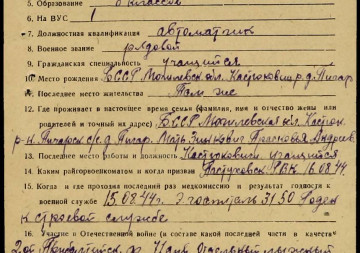 5. Образование 6 классов
6. На ВУС 1
7. Должностная квалификация автоматчик
8. Военное звание рядовой
9. Гражданская специальность учащийся
10. Место рождения БССР Могилевск. обл. Кастюкович. р. д. Пичар.
11. Последнее место жительства Там же
12. Где проживает в настоящее время семья (фамилия, имя и отчество жены или
родителей и точный их адрес) БССР Могилевская обл.
р-н. Пичарск с/с. д. Пичар. Мать
13. Последнее место работы и должность учащийся
14. Каким райгорвоенкоматом и когда призван РВК 16.08.44г.
15. Когда и где проходил последн. медкомиссию и результат годности к
военной службе 15.08.44г. Э/госпиталь 3150 Годен
к строевой службе
16. Участие в Отечественной войне (в составе какой последней части в качеств
2ой Прибалтийск. ф.